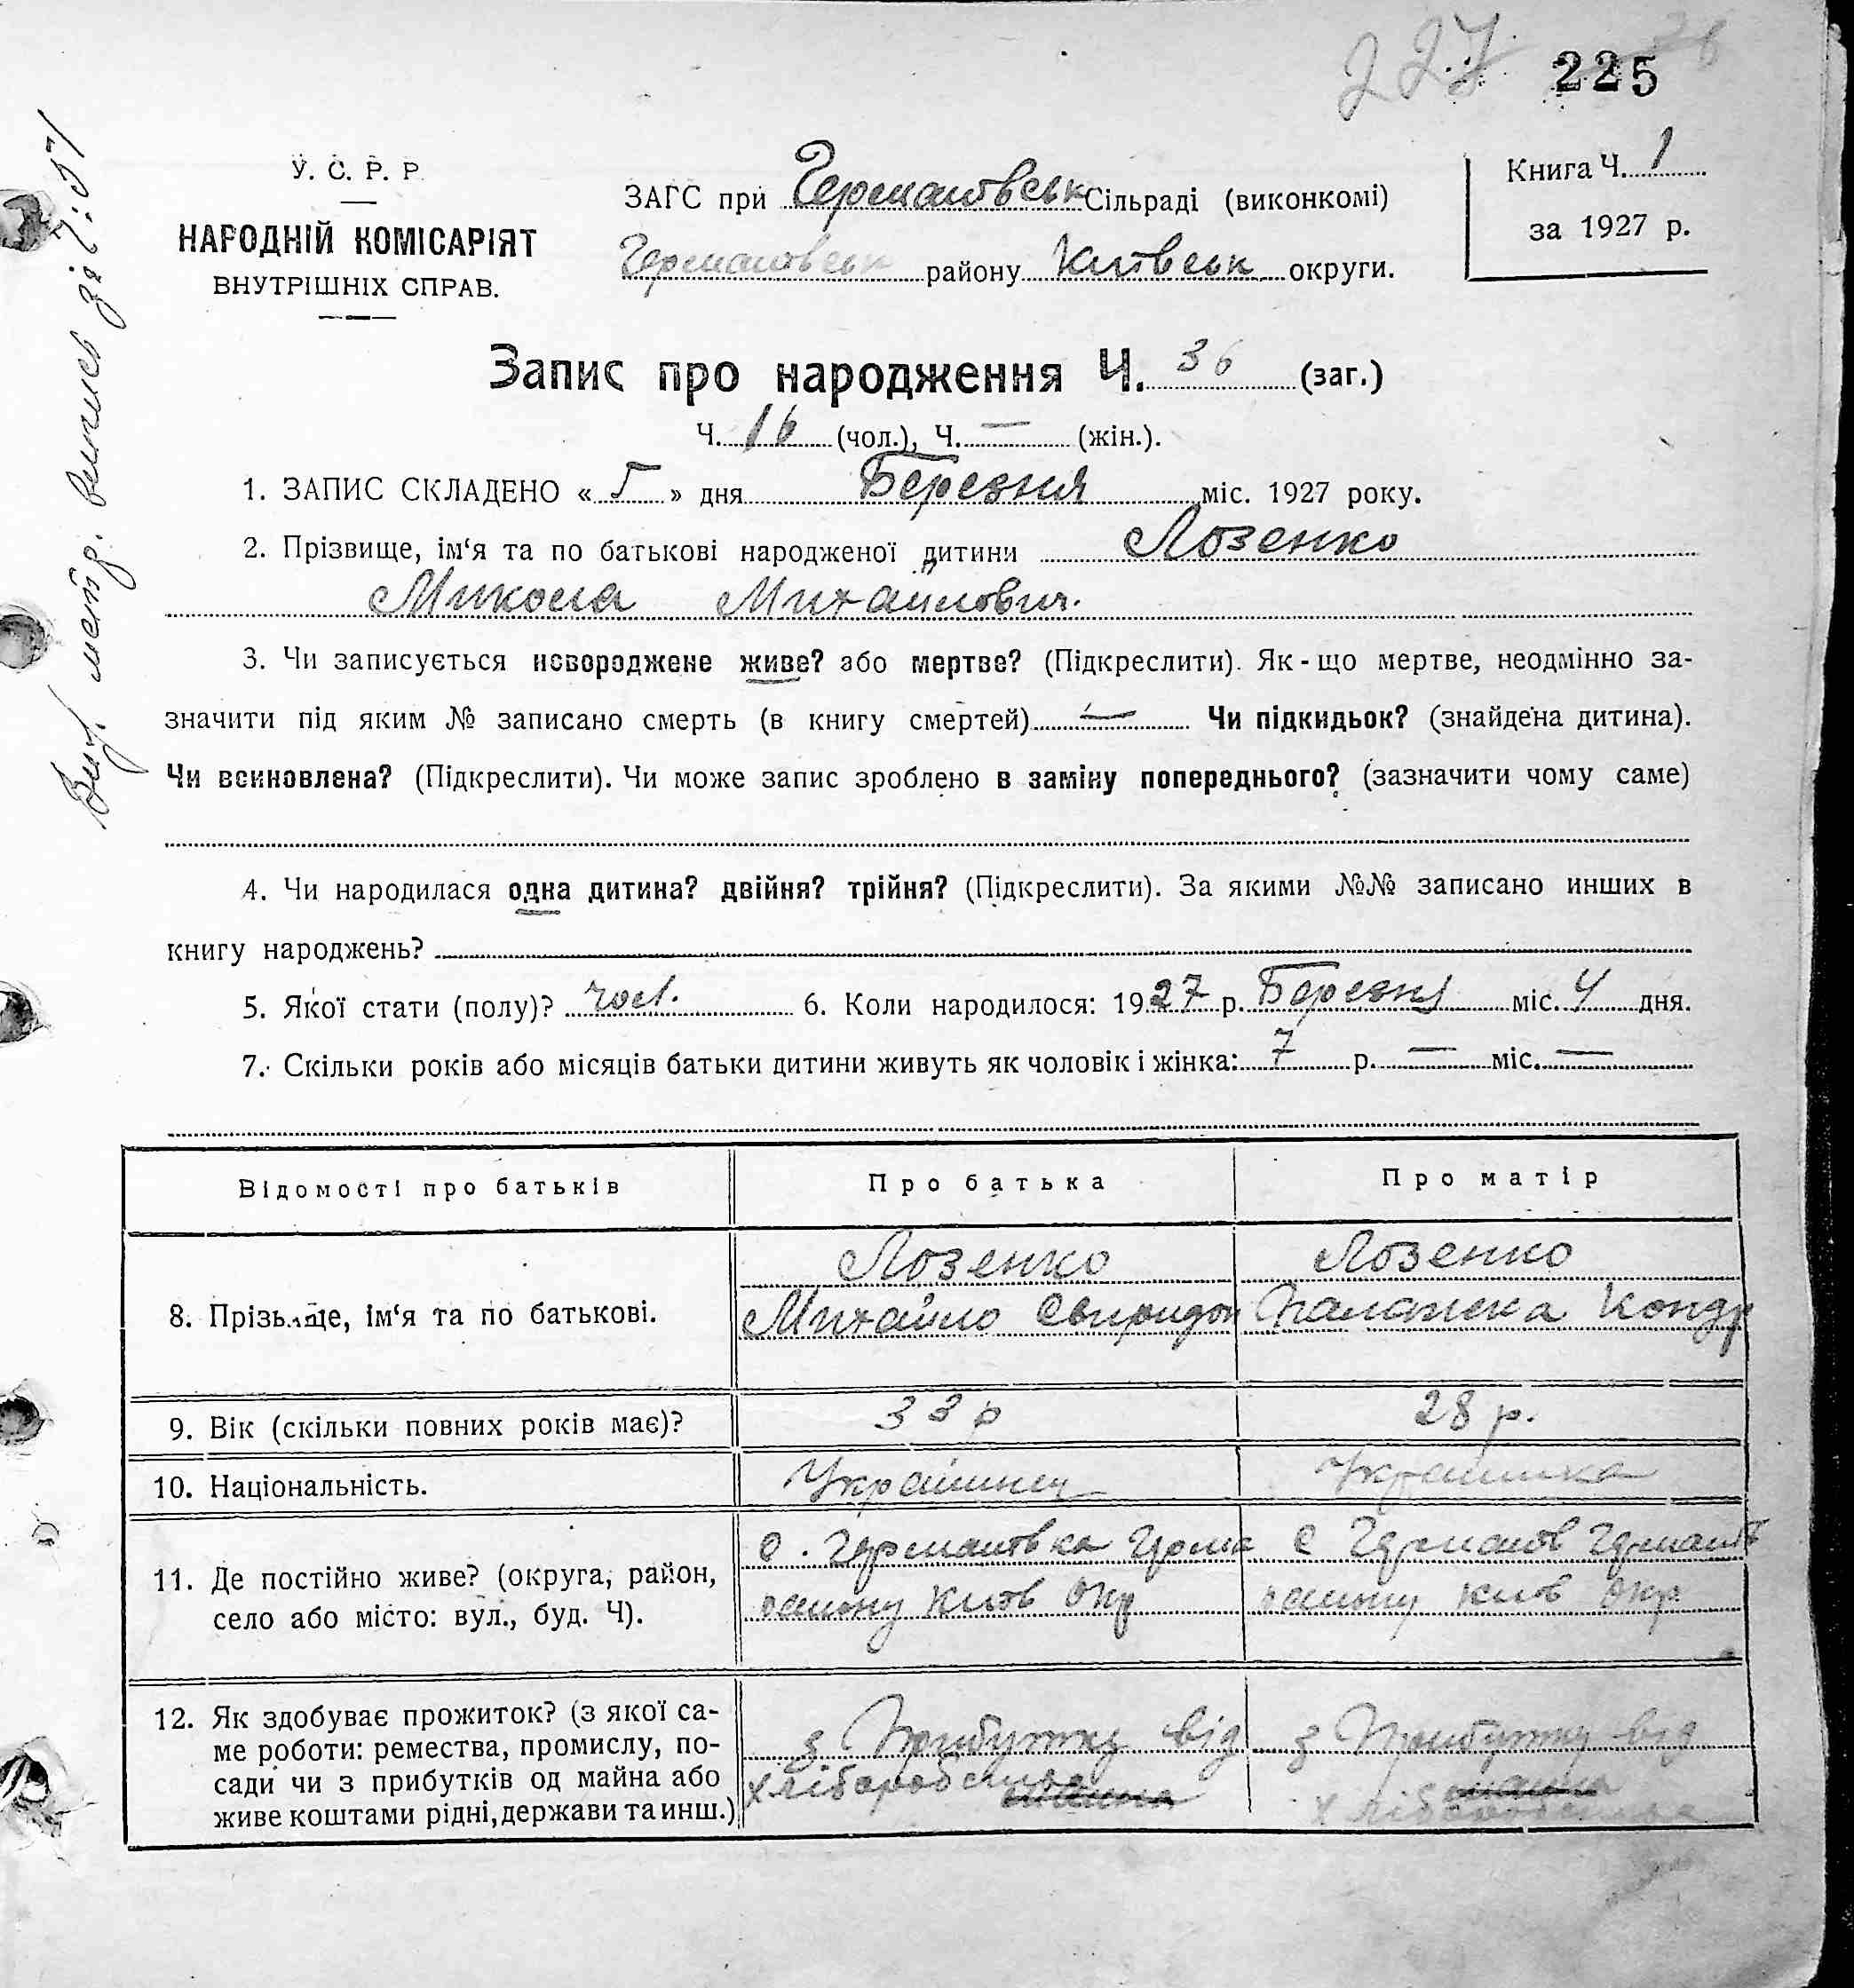 227 225
У. С. Р. Р
НАРОДНІЙ КОМІСАРІЯТ
ВНУТРІШНІХ СПРАВ.
ЗАГС при Германовськ Сільраді (виконкомі)
Германовськ району Київськ округи.
Книга Ч. 1
за 1927 р.
Запис про народження Ч. 36 (заг.)
Ч. 16 (чол.), Ч. — (жін.).
1. ЗАПИС СКЛАДЕНО « 5 » дня Березня міс. 1927 року.
2. Прізвище, ім‘я та по батькові народженої дитини Лозенко
Микола Михайлович.
3. Чи записується новороджене живе? або мертве? (Підкреслити). Як-що мертве, неодмінно за-
значити під яким № записано смерть (в книгу смертей) — Чи підкидьок? (знайдена дитина).
Чи всиновлена? (Підкреслити). Чи може запис зроблено в заміну попереднього? (зазначити чому саме)
4. Чи народилася одна дитина? двійня? трійня? (Підкреслити). За якими №№ записано инших в
книгу народжень?
5. Якої стати (полу)? чол. 6. Коли народилося: 1927 р. Березня міс. 4 дня.
7. Скільки років або місяців батьки дитини живуть як чоловік і жінка: 7 р. — міс. —
Відомості про батьків Про батька Про матір
8. Прізвище, ім‘я та по батькові.
Лозенко
Михайло Свиридон
Лозенко
Палажка Кондр
9. Вік (скільки повних років має)? 33 р 28 р.
10. Національність. Українец Українка
11. Де постійно живе? (округа, район,
село або місто: вул., буд. Ч).
с. Германовка Герма
району Київ Окр
с Германов Германів
району Київ Окр.
12. Як здобуває прожиток? (з якої са-
ме роботи: ремества, промислу, по-
сади чи з прибутків од майна або
живе коштами рідні, держави та инш.)
з Прибутку від
хліборобства
з Прибутку від
хліборобства